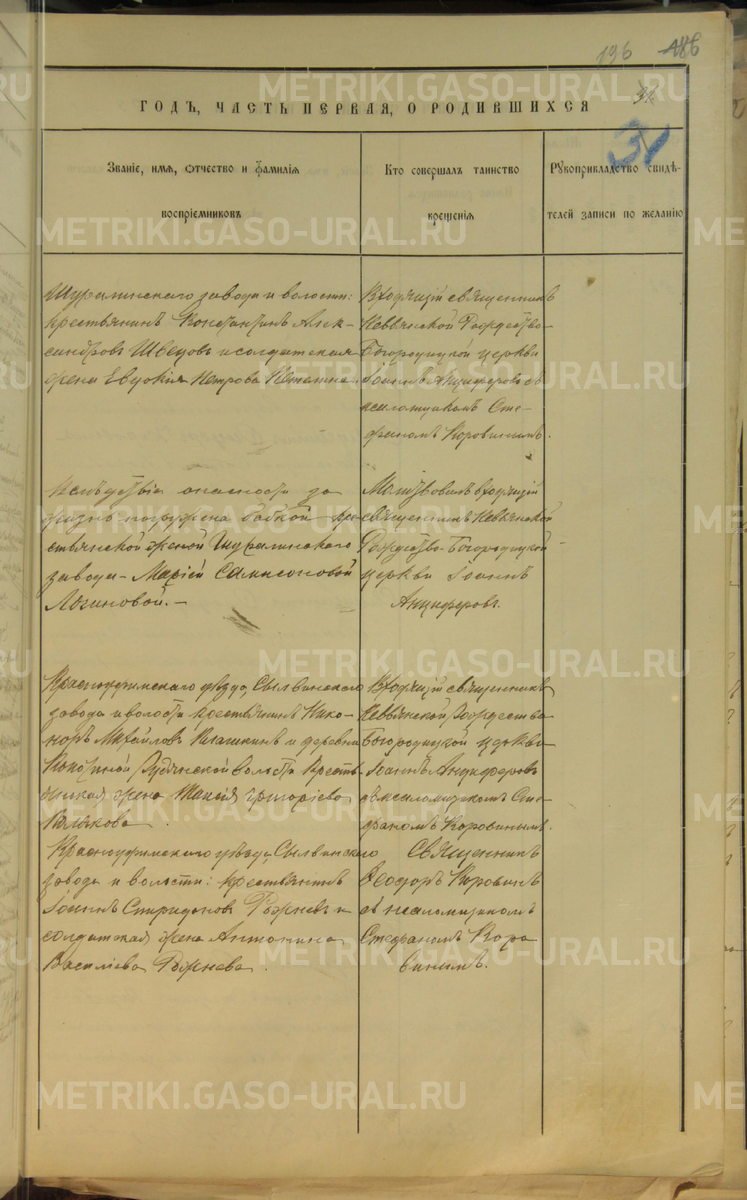 196 186
31
ГОДЪ, ЧАСТЬ ПЕРВАЯ, О РОДИВШИХСЯ
31
Званіе, имя, отчество и фамилія
воспріемниковъ
Кто совершалъ таинство
крещенія
Рукоприкладство свидѣ-
телей записи по желанію
Шуралинскаго завода и волости:
крестьянинъ Константинъ Алек-
сандровъ Швецовъ и солдатская
жена Евдокія Петрова
Входящій священникъ
Невьянской Рождество-
Богородицкой церкви
Іоаннъ Анциферовъ съ
псаломщикомъ Сте-
фаномъ Коровинымъ.
Вслѣдствіе опасности за
жизнь погружена бабкой кре-
стьянской женой Шуралинскаго
завода Маріей Самсоновой
Логиновой.-
Молитвовалъ входящій
священникъ Невьянской
Рождество-Богородицкой
церкви Іоаннъ
Анциферовъ.
Красноуфимскаго уѣзда, Сылвинскаго
завода и волости крестьянинъ Нико-
норъ Михайловъ и деревни
волости кресть-
янская жена Григоріева
Полякова.
Входящій священникъ
Невьянской Рождество-
Богородицкой церкви
Іоаннъ Анциферовъ
съ псаломщикомъ Сте-
фаномъ Коровинымъ.
Красноуфимскаго уѣзда, Сылвинскаго
завода и волости: крестьянинъ
Іоаннъ Спиридоновъ Рожневъ и
солдатская жена Антонина
Василіева Рожнева.
Священникъ
Ѳеодоръ Коровинъ
съ псаломщикомъ
Стефаномъ Коро-
винымъ.
METRIKI.GASO-URAL.RU